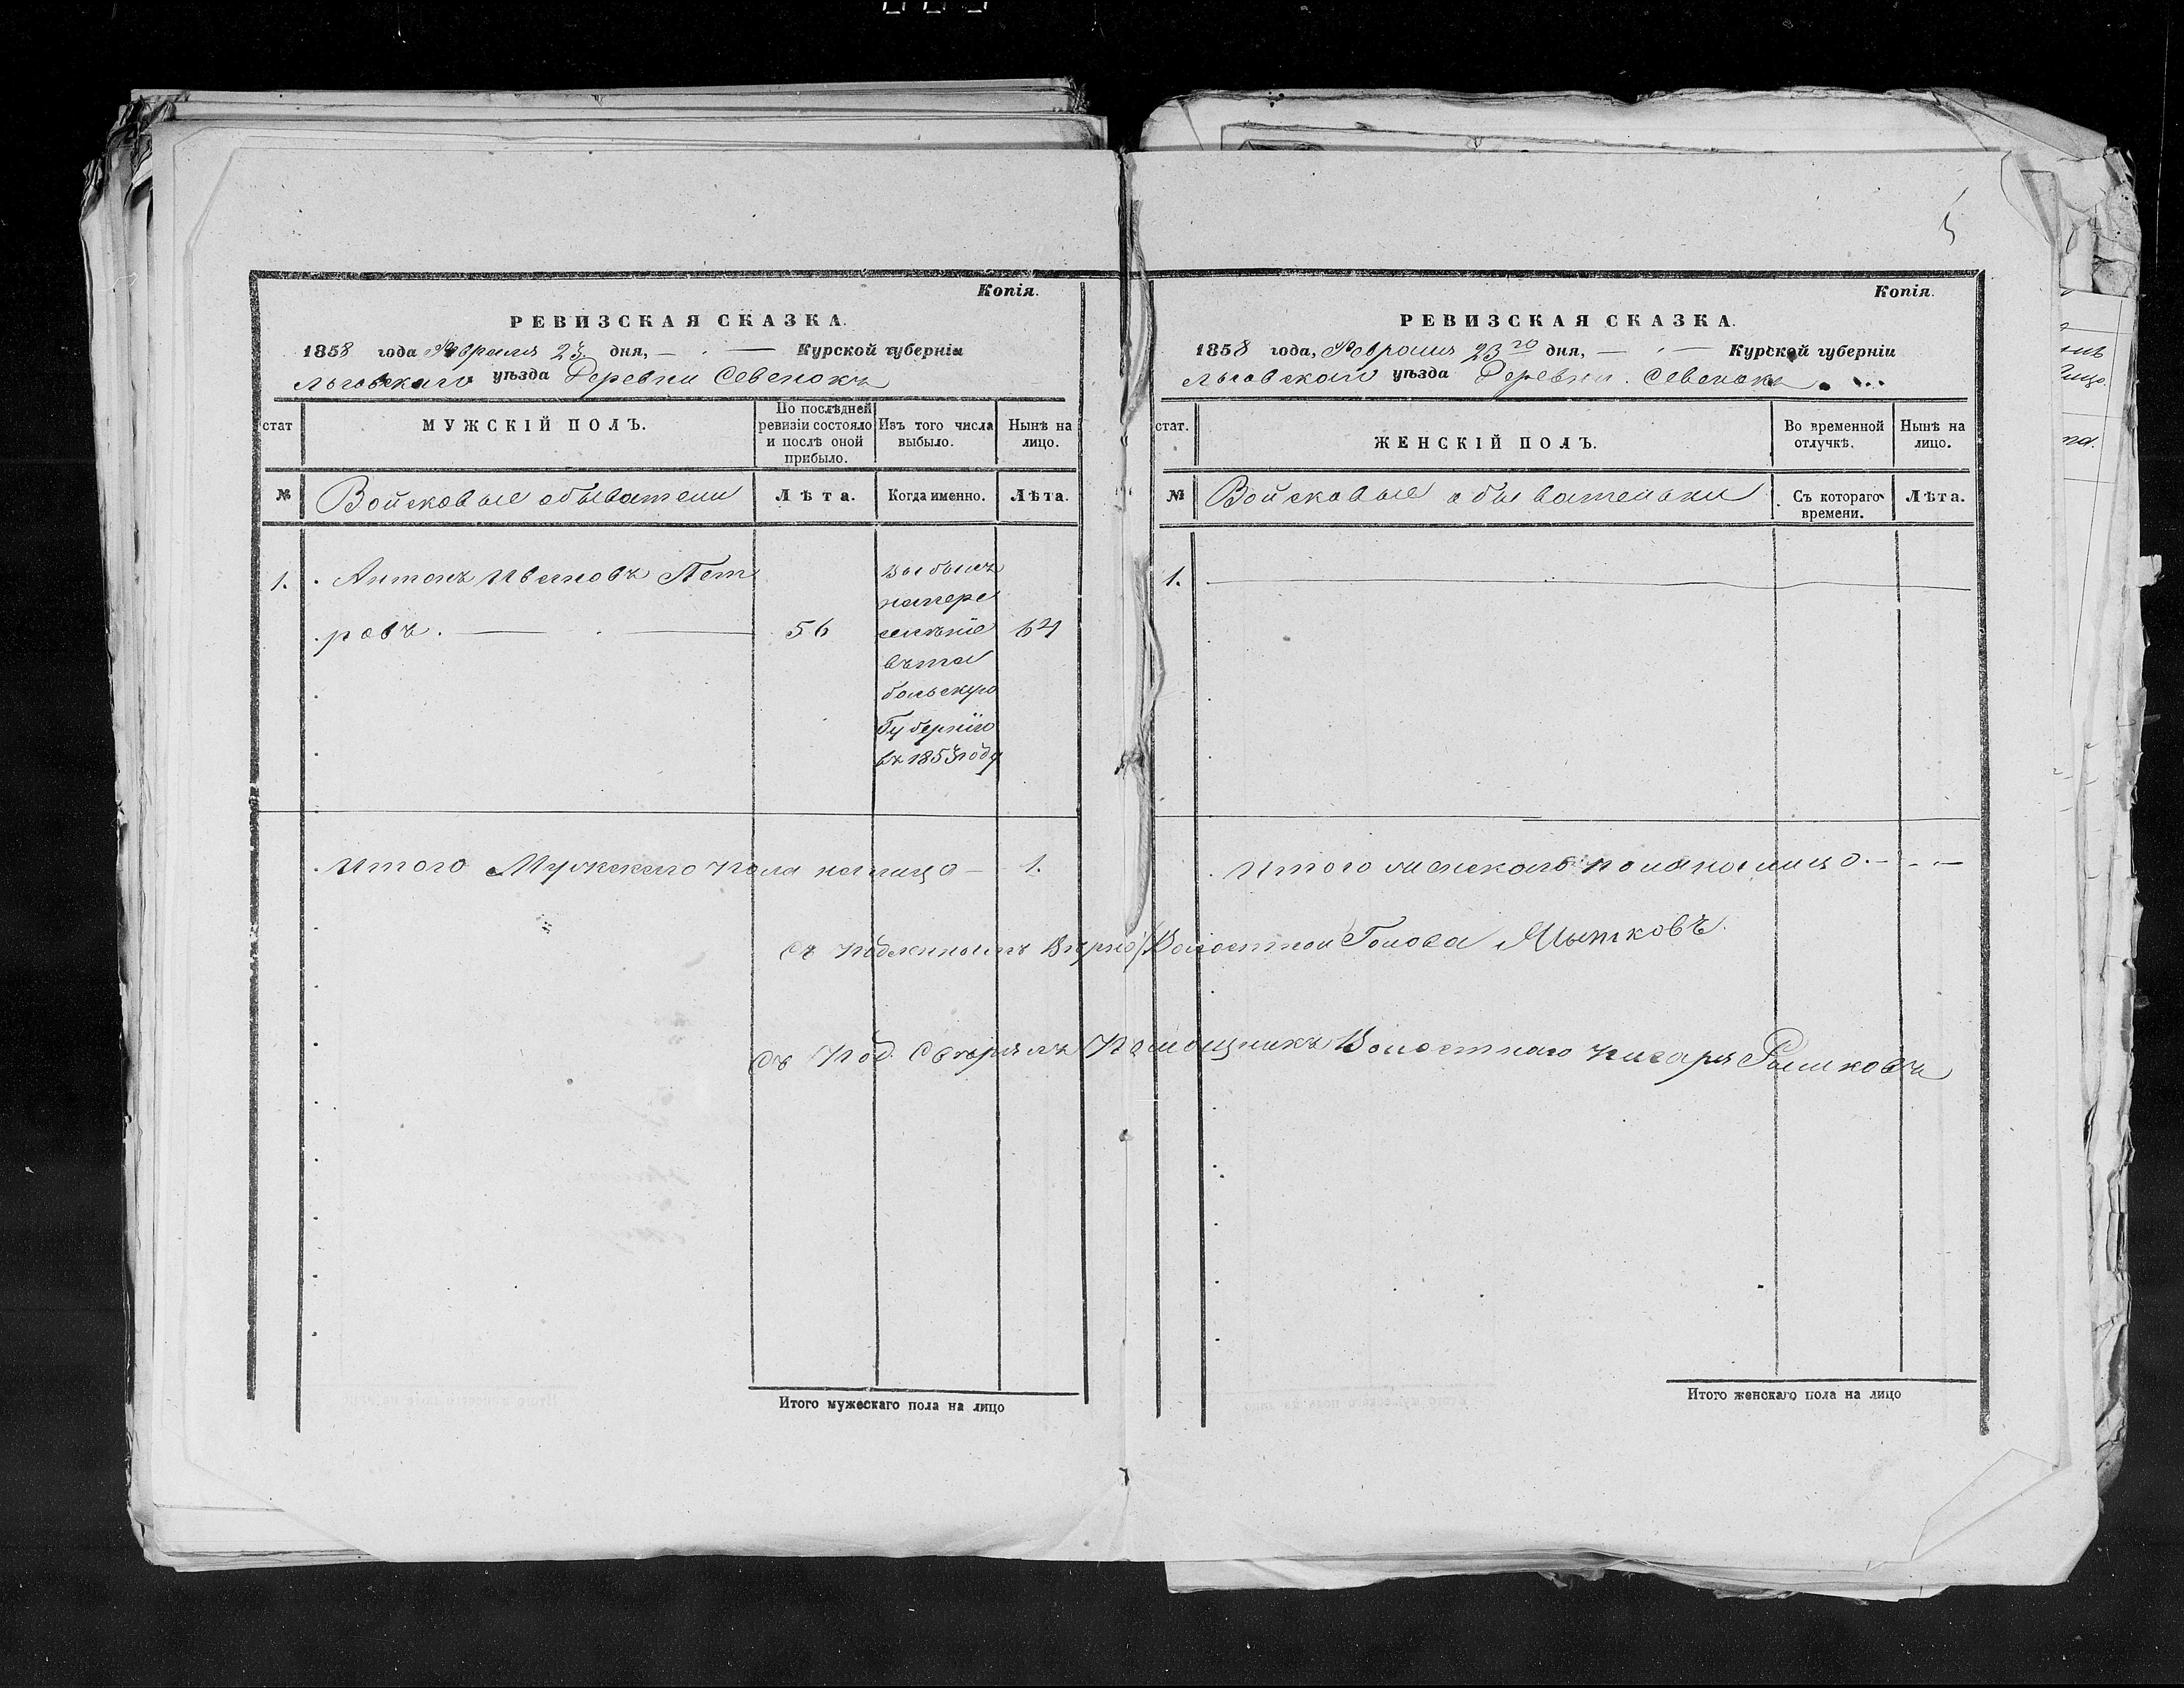 5
Копія.
РЕВИЗСКАЯ СКАЗКА.
1858 года Февраля 23 дня, Курской губерніи
Льговскаго уѣзда Деревни Севенокъ
стат
МУЖСКІЙ ПОЛЪ.
По послѣдней
ревизіи состояло
и послѣ оной
прибыло.
Изъ того числа
выбыло.
Нынѣ на
лицо.
№
Войсковые обыватели
Лѣта.
Когда именно.
Лѣта.
1. Антонъ Ивановъ Пет
ровъ. 56
выбылъ
напере
селѣніе
въ то
больскую
Губернію
въ 1853 году
64
Итого Мужскаго пола налицо 1.
Итого мужескаго пола на лицо
Копія.
РЕВИЗСКАЯ СКАЗКА.
1858 года, Февраля 23го дня, Курской губерніи
Льговскаго уѣзда Деревни Севенокъ
стат.
ЖЕНСКІЙ ПОЛЪ.
Во временной
отлучкѣ.
Нынѣ на
лицо.
№
Войсковые обывательки
Съ котораго
времени.
Лѣта.
1.
Итого женскаго пола на лицо.
Съ подлиннымъ Вѣрно Волостной Голова
Съ под. Свѣрялъ Помощникъ Волостнаго писаря
Итого женскаго пола на лицо